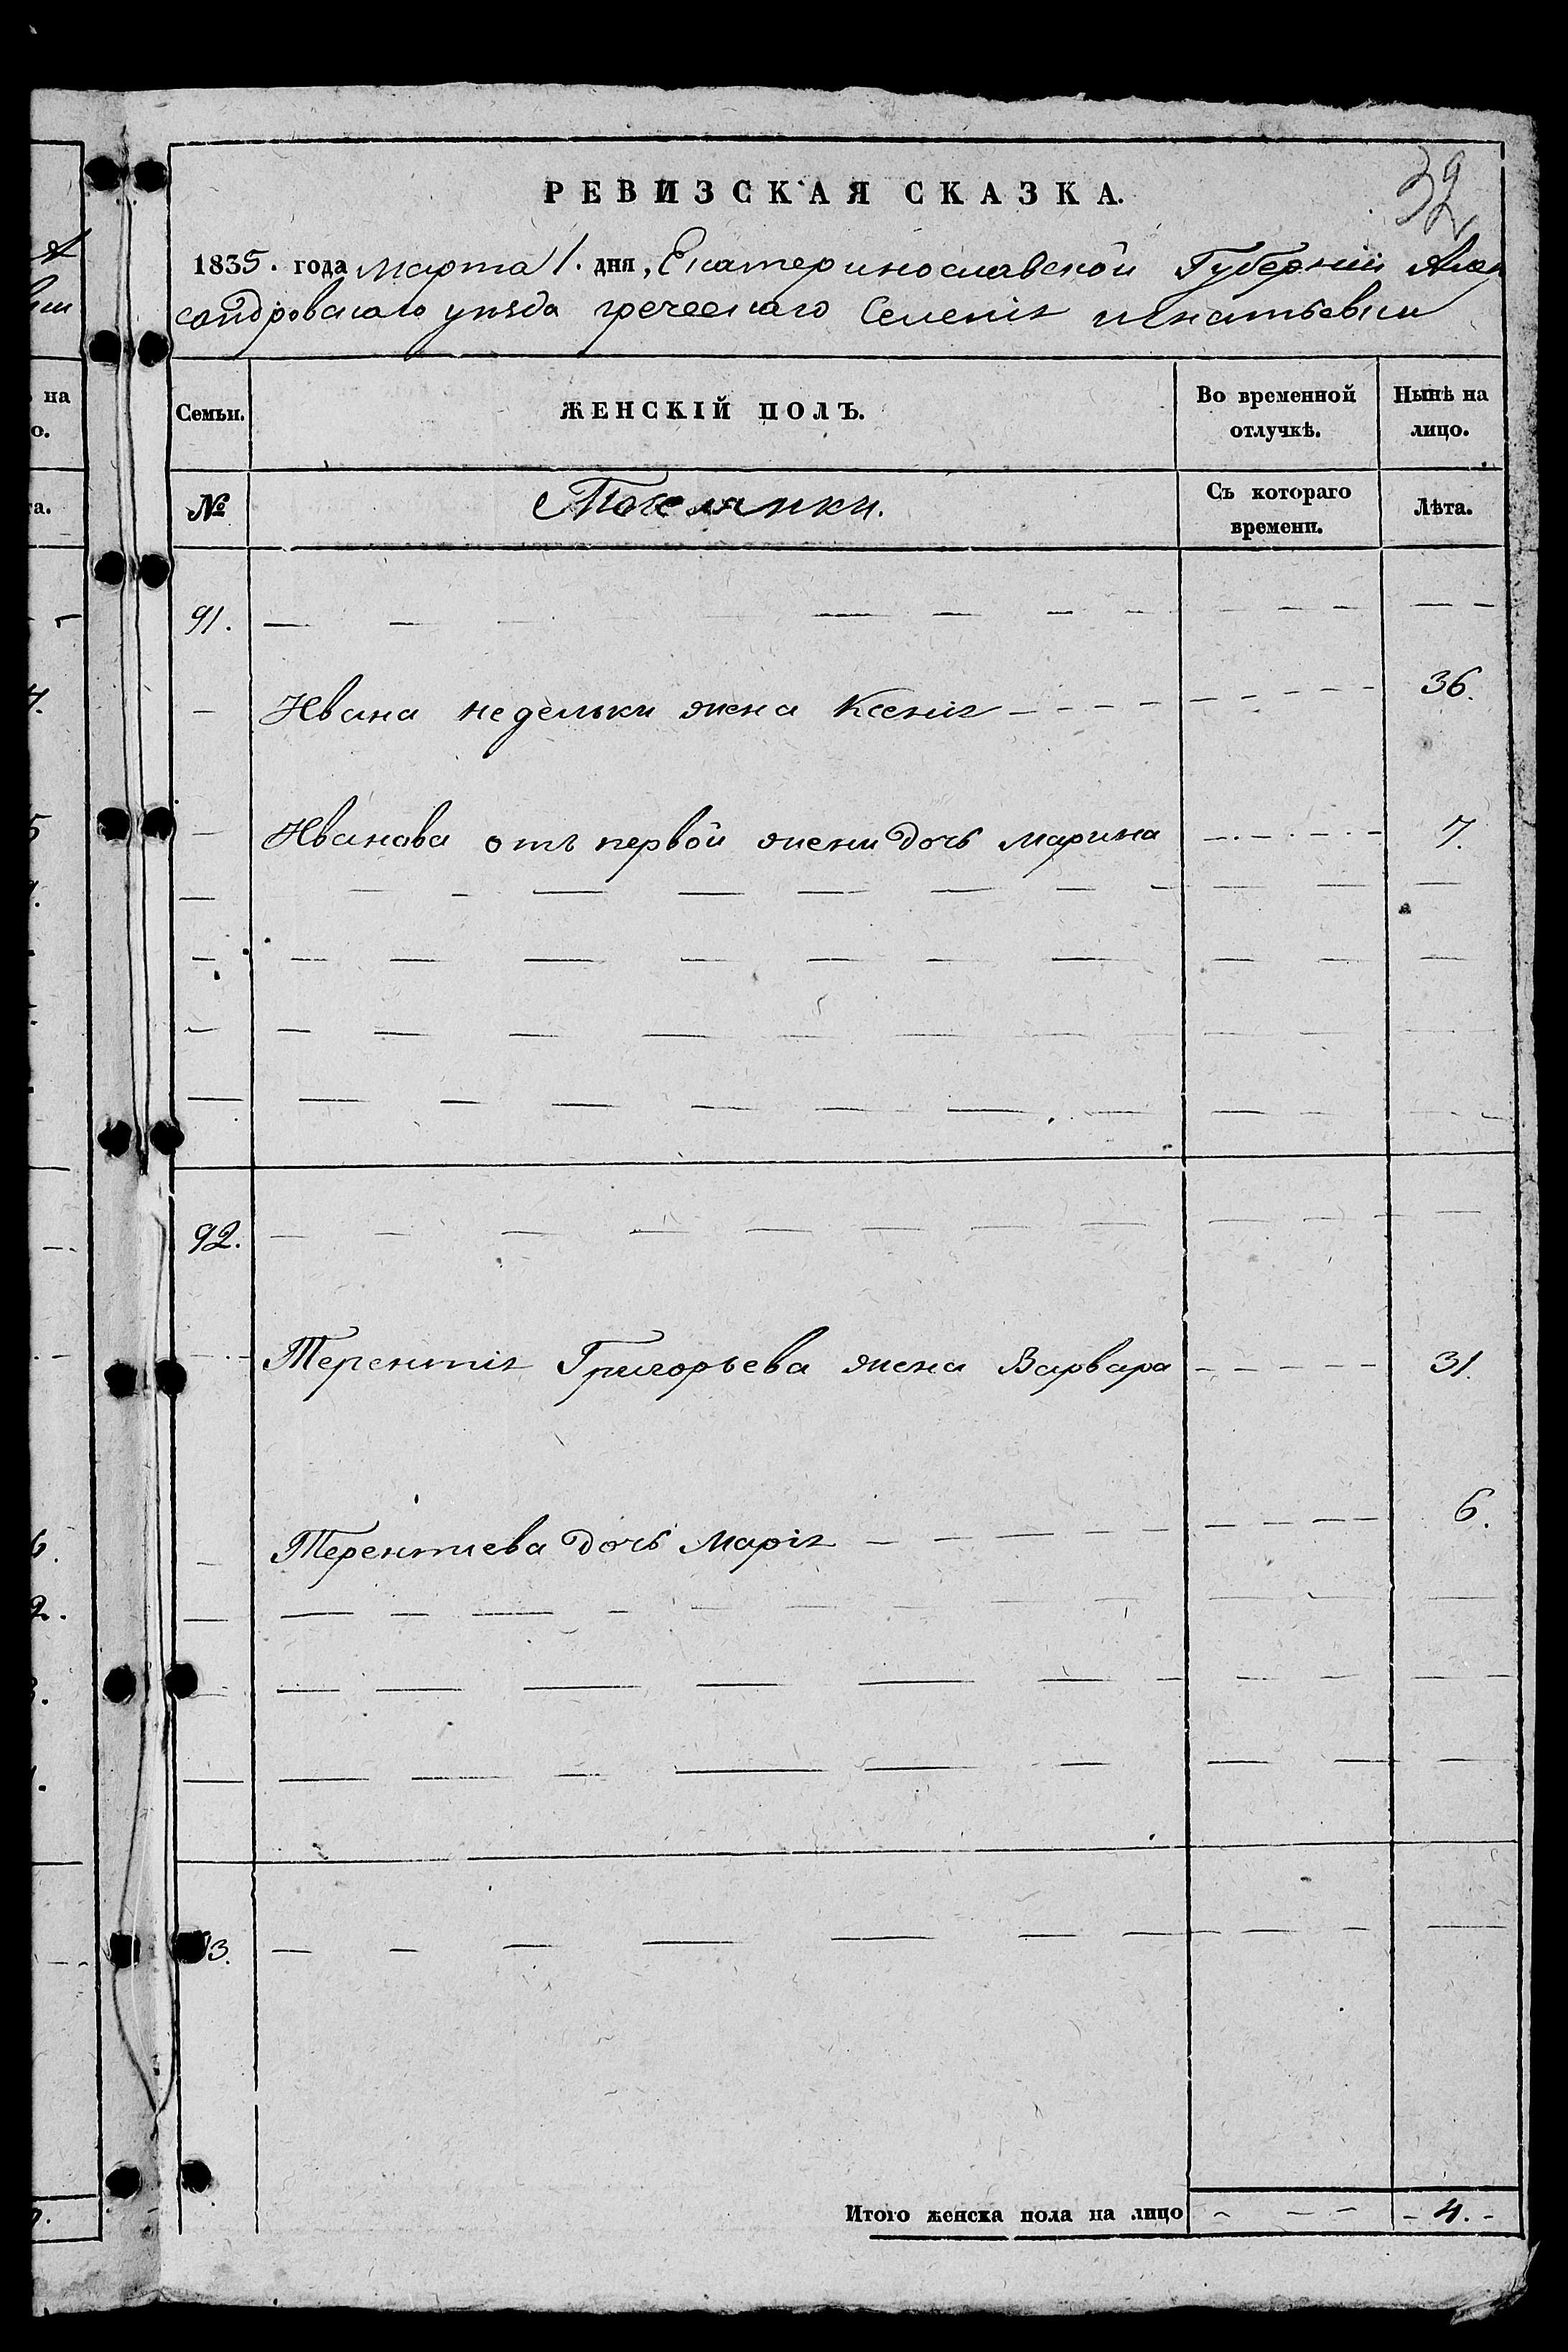 32
РЕВИЗСКАЯ СКАЗКА.
1835. года марта 1. дня, Екатеринославской Губерніи Алек
сандровскаго уѣзда греческаго Селенія Игнатьевки
Семьи. ЖЕНСКІЙ ПОЛЪ. Во временной отлучкѣ. Нынѣ на лицо.
№ Поселянки. Съ котораго времени. Лѣта.
91. — — — — — — — —
— Ивана недельки жена Ксенія — — — — 36.
— Иванова отъ первой жени дочь марина — — — — 7.
92. — — — — — — — —
— Терентія Григорьева жена Варвара — — — — 31.
— Терентиева дочь Марія — — — — 6.
3. — — — — — — —
Итого женска пола на лицо — — — - 4. -
на
о.
та.
7.
5
6.
2.